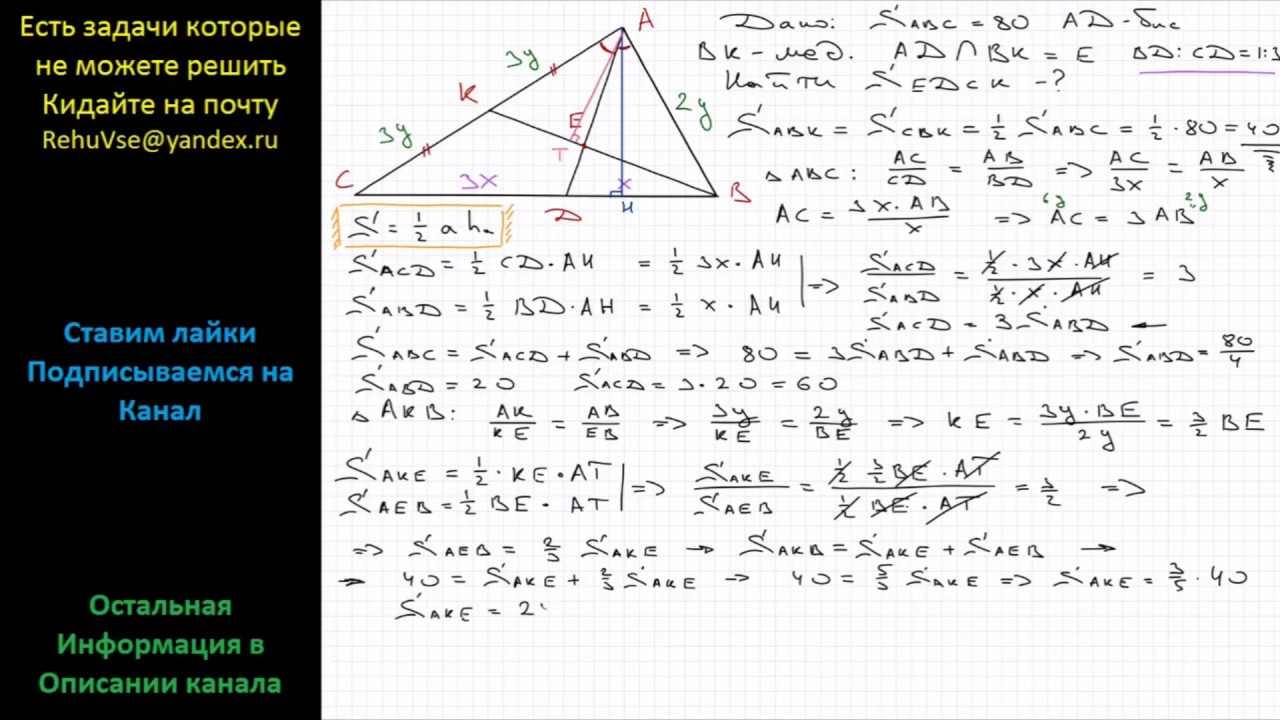 Есть задачи которые
не можете решить
Кидайте на почту
RehuVse@yandex.ru
Ставим лайки
Подписываемся на
Канал
Остальная
Информация в
Описании канала
Дано: S ABC = 80 AD - бис
BK - мед. AD ∩ BK = E BD : CD = 1:3
Найти S EDCK - ?
A
3y
K
2y
E
3y
T
C
3x
x
B
D
H
S ABK = S CBK = 1/2 S ABC = 1/2 · 80 = 40
△ ABC: AC/CD = AB/BD => AC/3x = AB/x
AC = 3x · AB/x => AC = 3 AB
6y 2y
S = 1/2 a hₐ
S ACD = 1/2 CD · AH = 1/2 3x · AH
S ABD = 1/2 BD · AH = 1/2 x · AH
=> S ACD/S ABD = 1/2 · 3x · AH/1/2 · x · AH = 3
S ACD = 3 S ABD ←
S ABC = S ACD + S ABD => 80 = 3S ABD + S ABD => S ABD = 80/4
S ABD = 20 S ACD = 3 · 20 = 60
△ AKB: AK/KE = AB/EB => 3y/KE = 2y/BE => KE = 3y · BE/2y = 3/2 BE
S AKE = 1/2 · KE · AT
S AEB = 1/2 BE · AT
=> S AKE/S AEB = 1/2 3/2 BE · AT/1/2 BE · AT = 3/2 =>
=> S AEB = 2/3 S AKE → S AKB = S AKE + S AEB →
→ 40 = S AKE + 2/3 S AKE → 40 = 5/3 S AKE => S AKE = 3/5 · 40
S AKE = 2